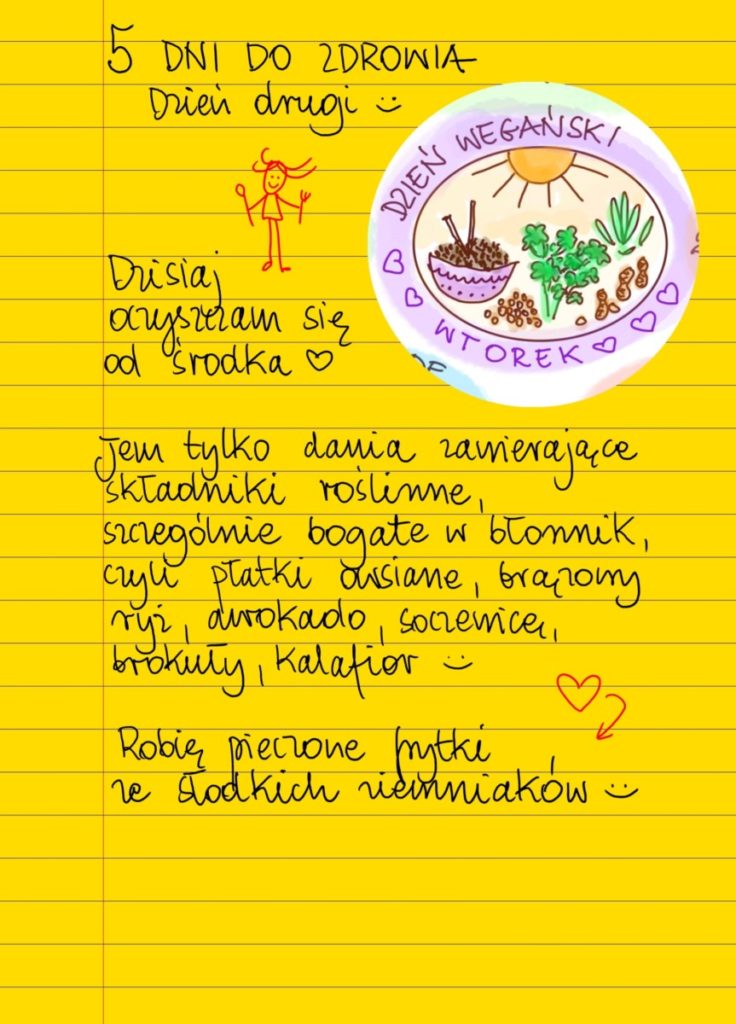 5 DNI DO ZDROWIA
Dzień drugi
DZIEŃ WEGAŃSKI
WTOREK
Dzisiaj
oczyszczam się
od środka
Jem tylko dania zawierające
składniki roślinne,
szczególnie bogate w błonnik,
czyli płatki owsiane, brązowy
ryż, awokado, soczewicę,
brokuły, kalafior
Robię pieczone frytki
ze słodkich ziemniaków